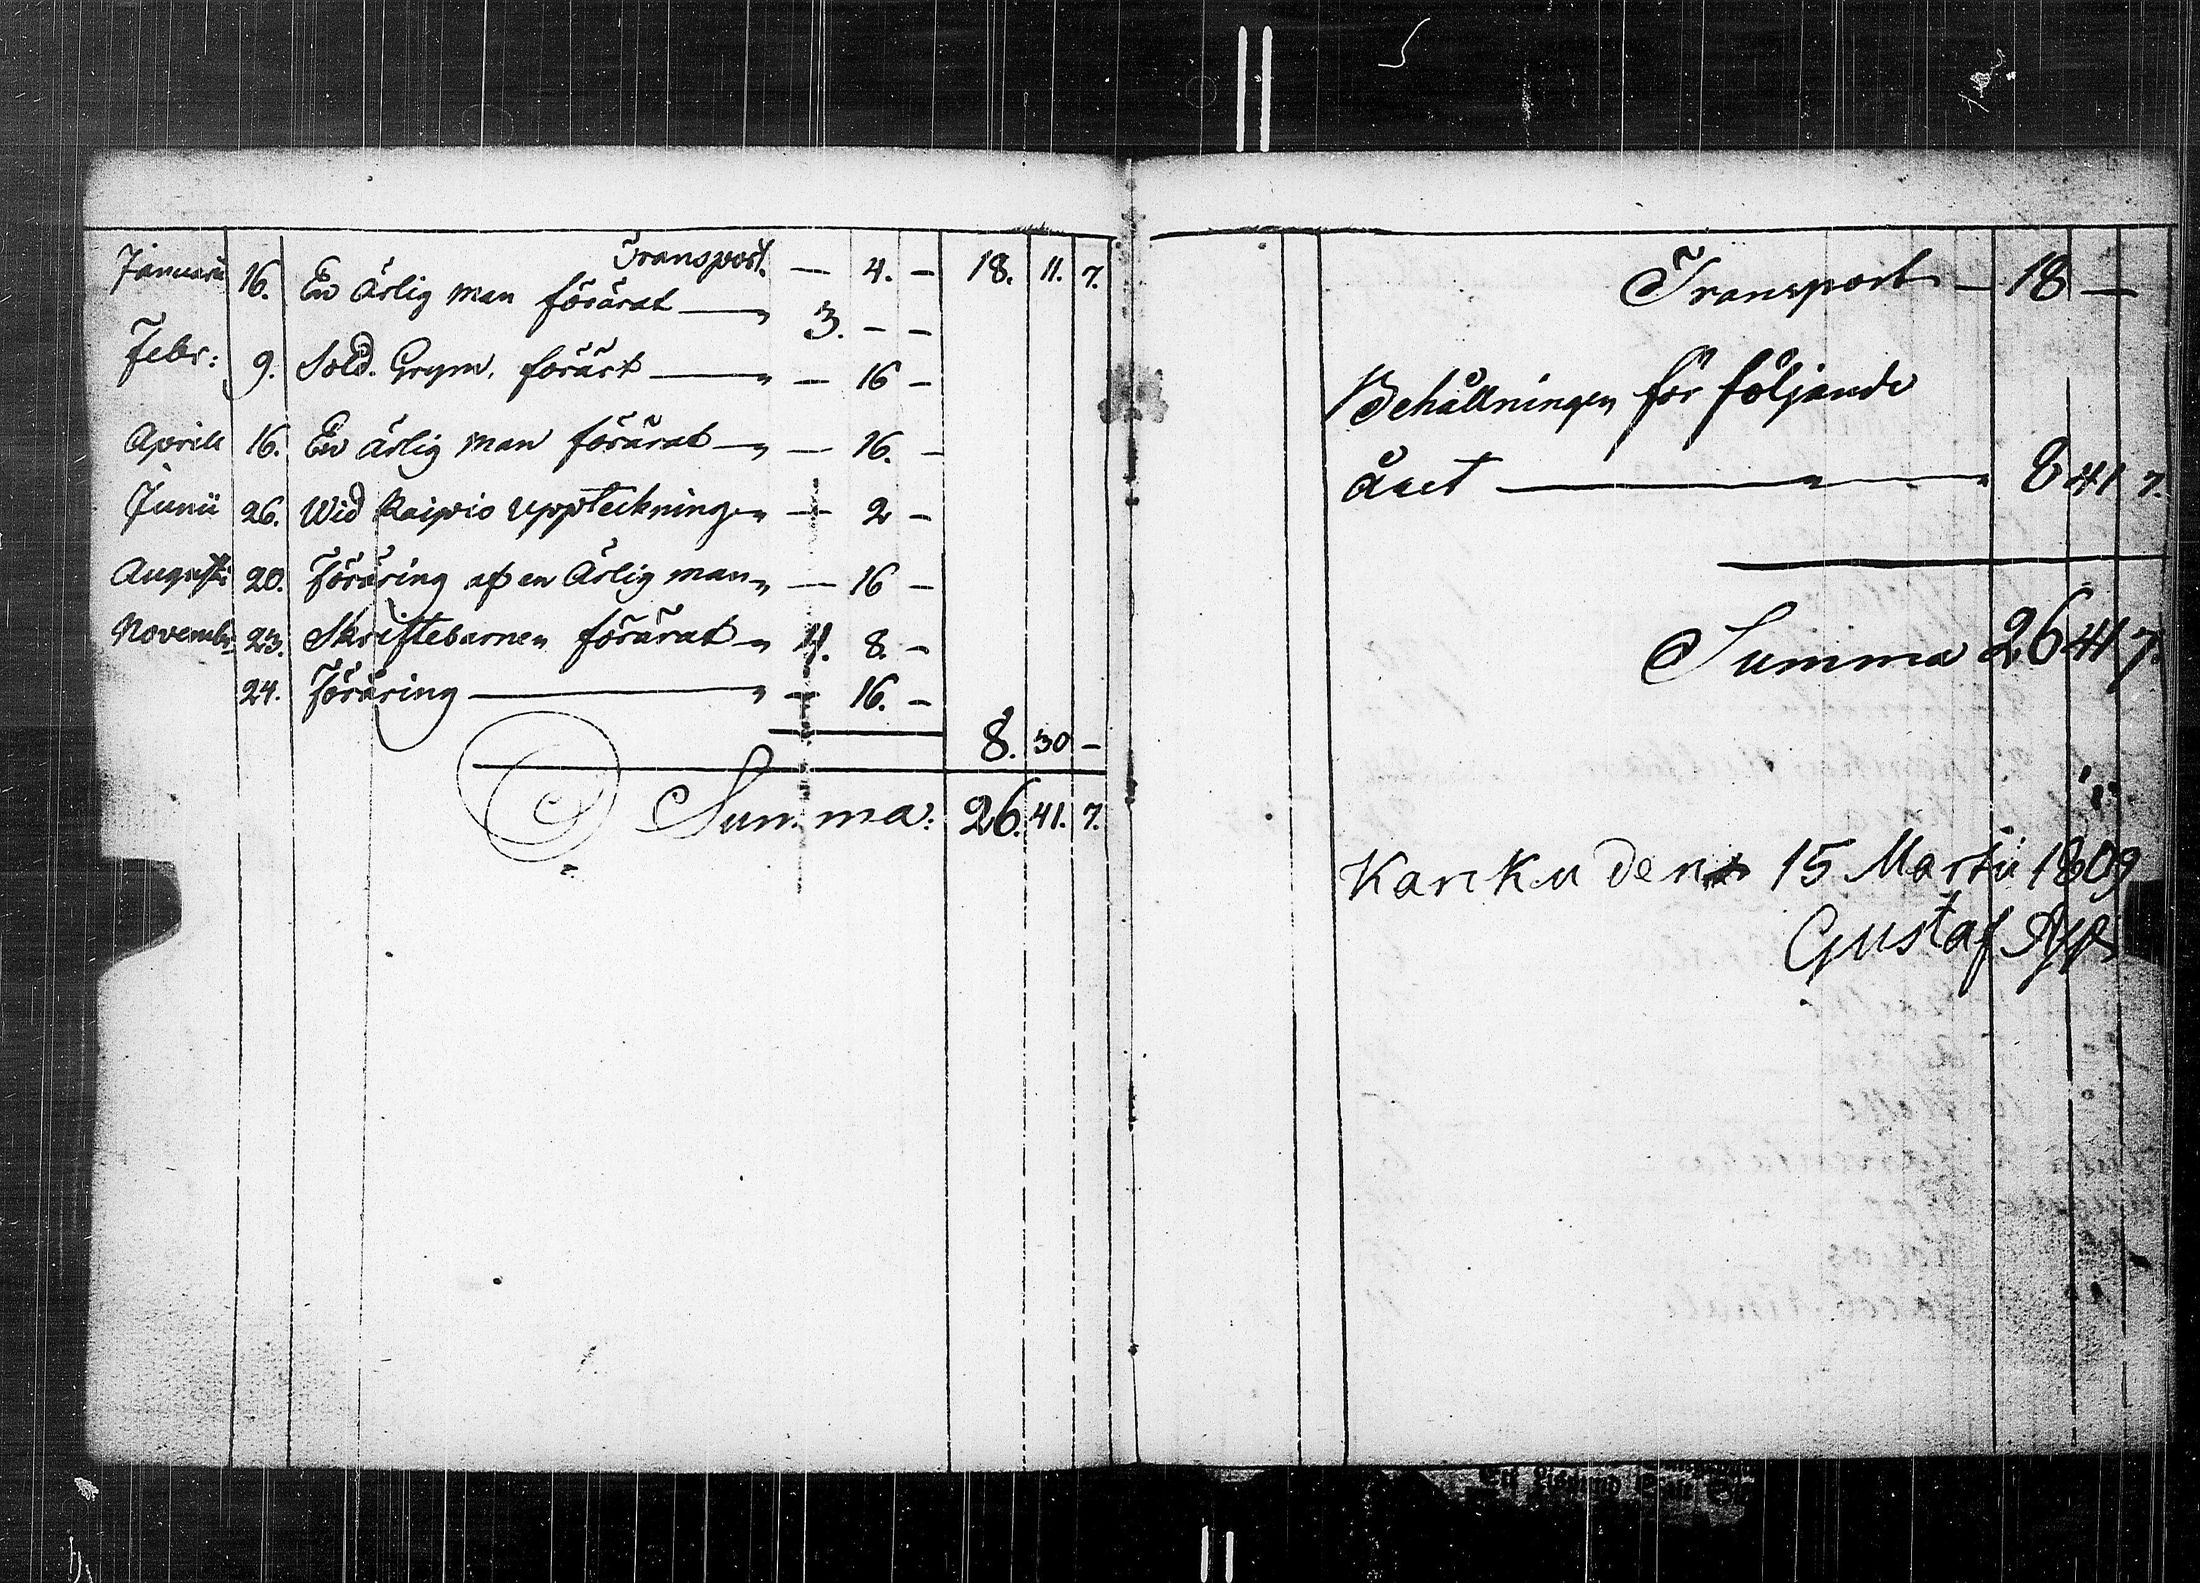 Transport. — 4. — 18. 11. 7.
Januarii 16. En Ärlig man förärat — 3. — —
Febr: 9. Sold. Grym. förärt — — 16 —
Aprill 16. En ärlig man förärat — — 16. —
Junii 26. Wid Raipio uppteckning — 2 —
Augusti 20. Föräring af en Ärlig man — 16 —
Novembr. 23. Skriftebarnen förärat 4. 8. —
24. Föräring — — 16. —
8. 30 —
Summa: 26. 41. 7.
Transport — 18 —
Behållningen för följande
Året — 8 41 7.
Summa 26 41 7.
Karcku den 15 Martii 1809
Gustaf